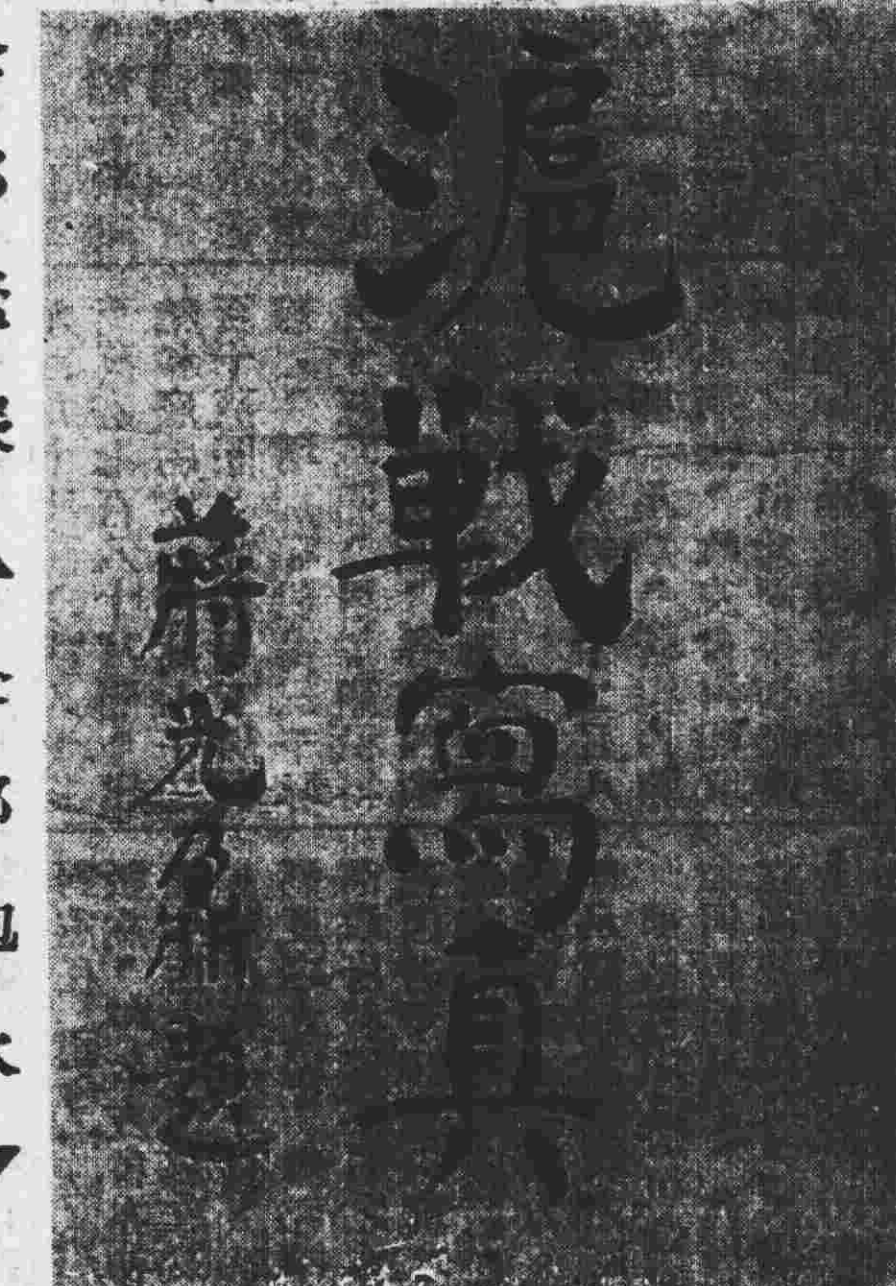 滬戰寫真
蔣光鼐題